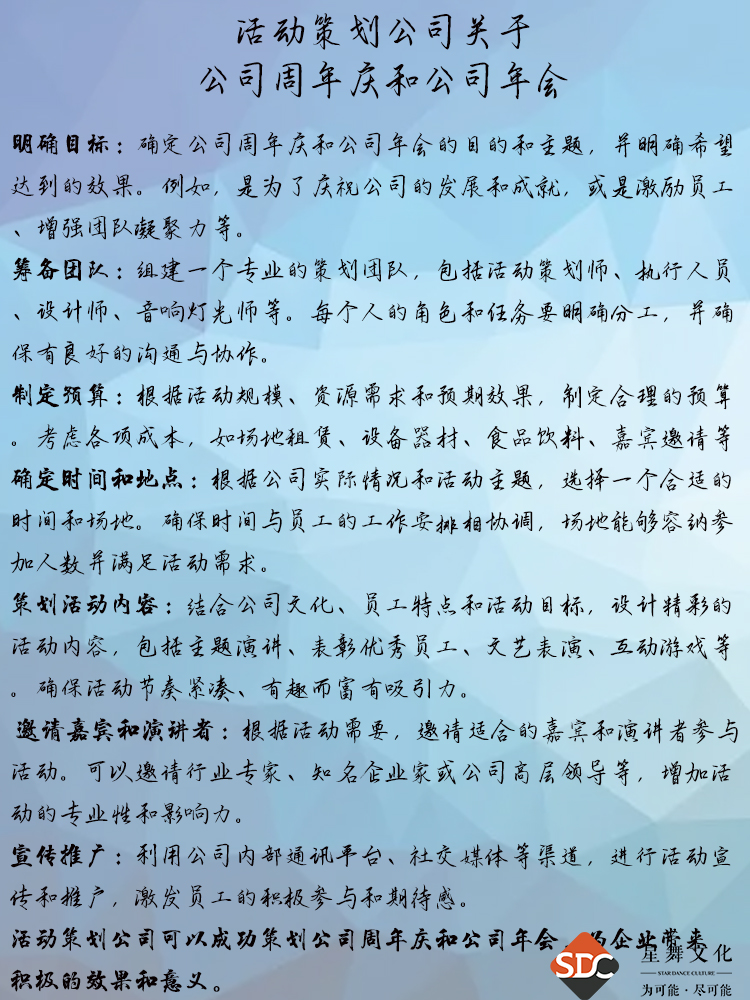 活动策划公司关于
公司周年庆和公司年会
明确目标：确定公司周年庆和公司年会的目的和主题，并明确希望
达到的效果。例如，是为了庆祝公司的发展和成就，或是激励员工
、增强团队凝聚力等。
筹备团队：组建一个专业的策划团队，包括活动策划师、执行人员
、设计师、音响灯光师等。每个人的角色和任务要明确分工，并确
保有良好的沟通与协作。
制定预算：根据活动规模、资源需求和预期效果，制定合理的预算
。考虑各项成本，如场地租赁、设备器材、食品饮料、嘉宾邀请等
确定时间和地点：根据公司实际情况和活动主题，选择一个合适的
时间和场地。确保时间与员工的工作安排相协调，场地能够容纳参
加人数并满足活动需求。
策划活动内容：结合公司文化、员工特点和活动目标，设计精彩的
活动内容，包括主题演讲、表彰优秀员工、文艺表演、互动游戏等
。确保活动节奏紧凑、有趣而富有吸引力。
邀请嘉宾和演讲者：根据活动需要，邀请适合的嘉宾和演讲者参与
活动。可以邀请行业专家、知名企业家或公司高层领导等，增加活
动的专业性和影响力。
宣传推广：利用公司内部通讯平台、社交媒体等渠道，进行活动宣
传和推广，激发员工的积极参与和期待感。
活动策划公司可以成功策划公司周年庆和公司年会，为企业带来
积极的效果和意义。
SDC
星舞文化
STAR DANCE CULTURE
为可能·尽可能